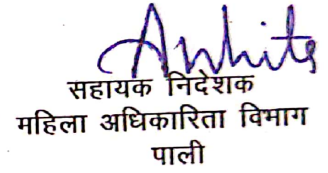 Ankita
सहायक निदेशक
महिला अधिकारिता विभाग
पाली